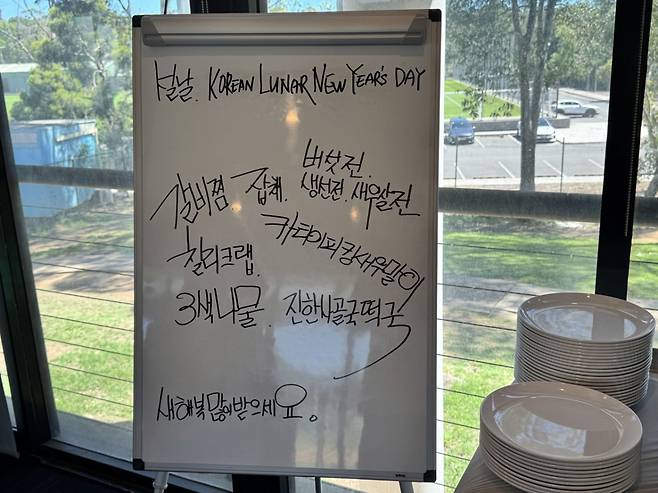 설날. KOREAN LUNAR NEW YEAR'S DAY
버섯전.
갈비찜 잡채. 생선전. 새우살전
카타이피킹새우말이
칠리크랩.
3색나물. 진한사골국떡국
새해복많이받으세요.